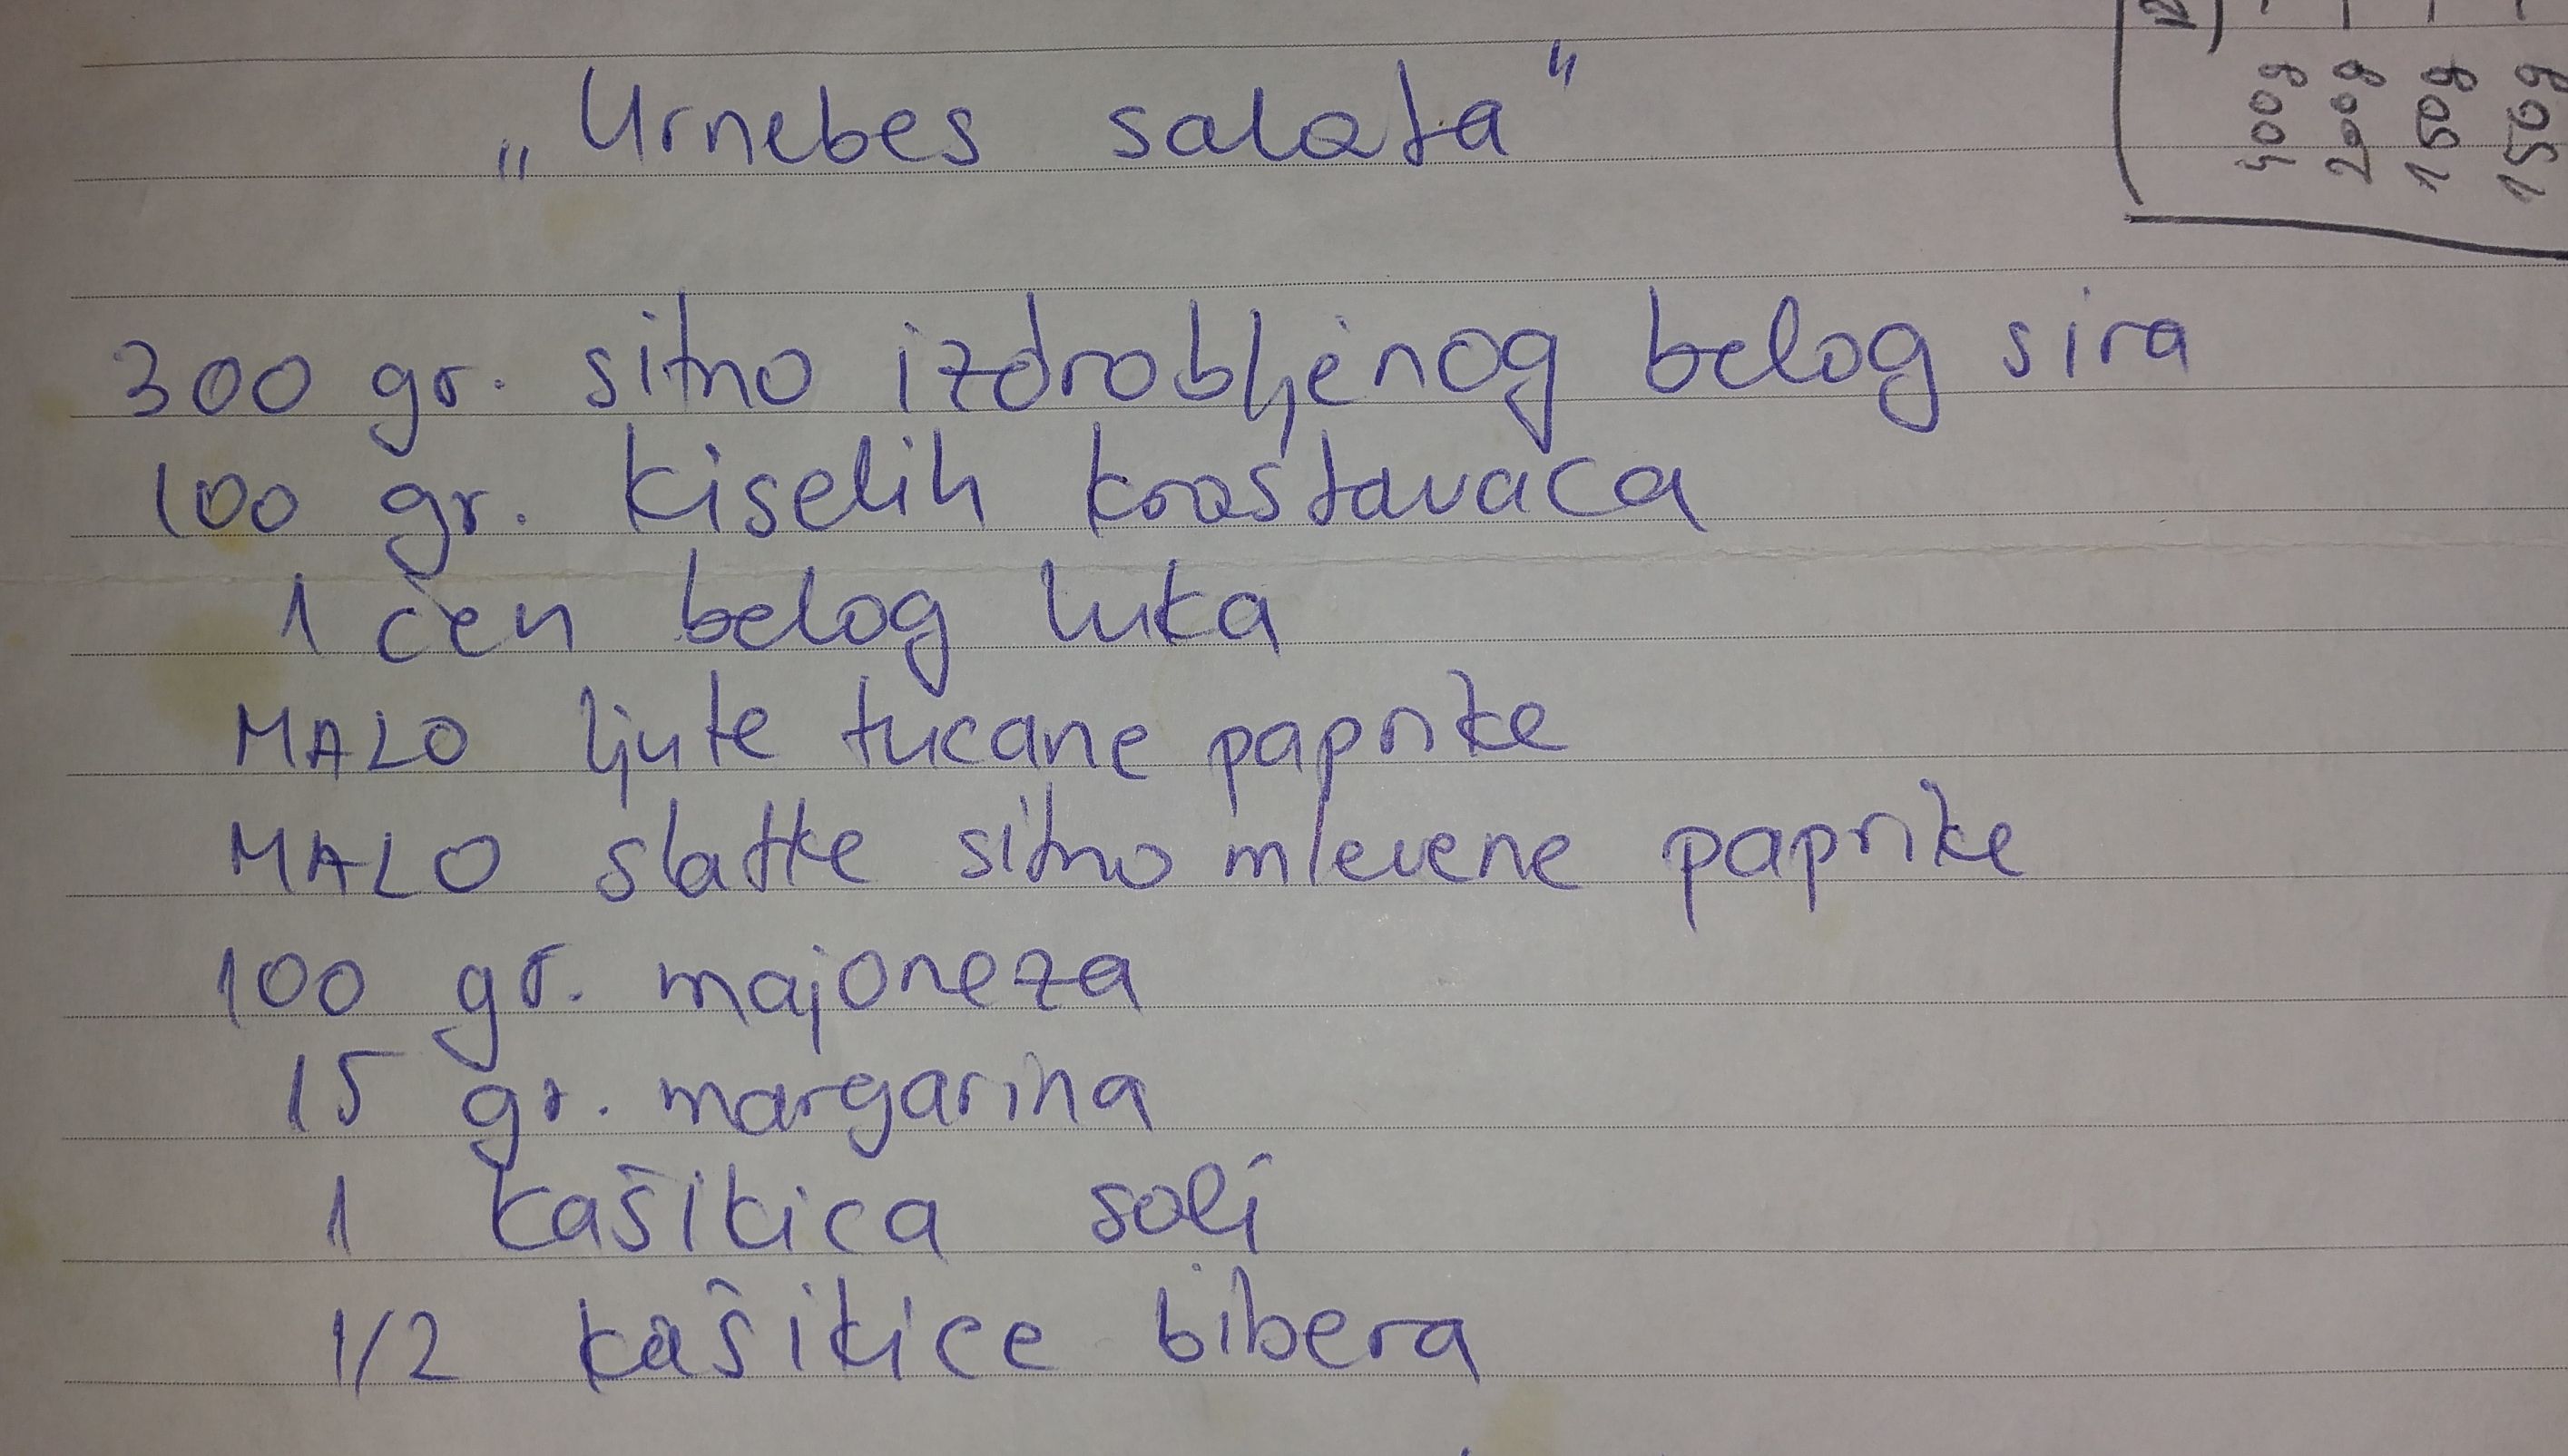 „Urnebes salata"
300 gr. sitno izdrobljenog belog sira
100 gr. kiselih krastavaca
1 čen belog luka
MALO ljute tucane paprike
MALO slatke sitno mlevene paprike
100 gr. majoneza
15 gr. margarina
1 kašikica soli
1/2 kašikice bibera
400g -
200g -
150g -
150g -